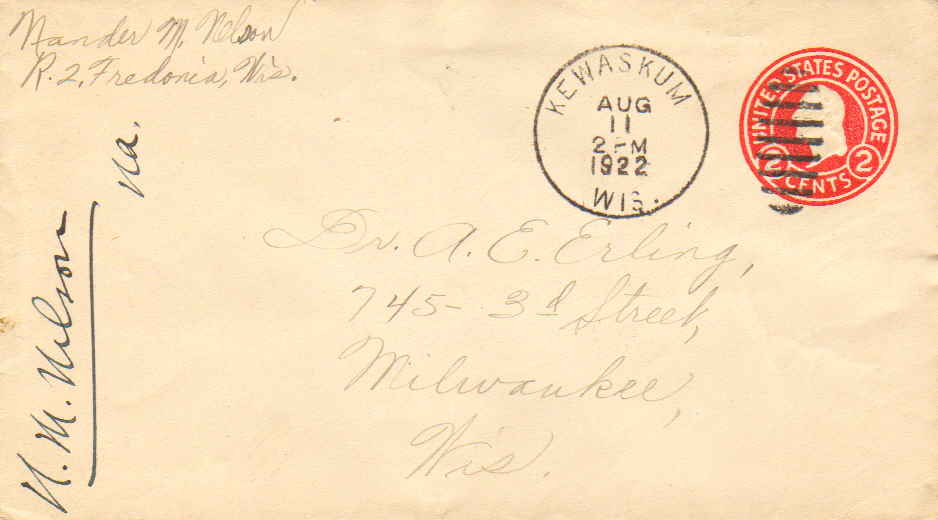 Nander M. Nelson
R. 2, Fredonia, Wis.
KEWASKUM
AUG
11
2 PM
1922
WIS.
UNITED STATES POSTAGE
2 CENTS 2
N. M. Nelson
Na.
Dr. A. E. Erling,
745- 3d Street,
Milwaukee,
Wis.